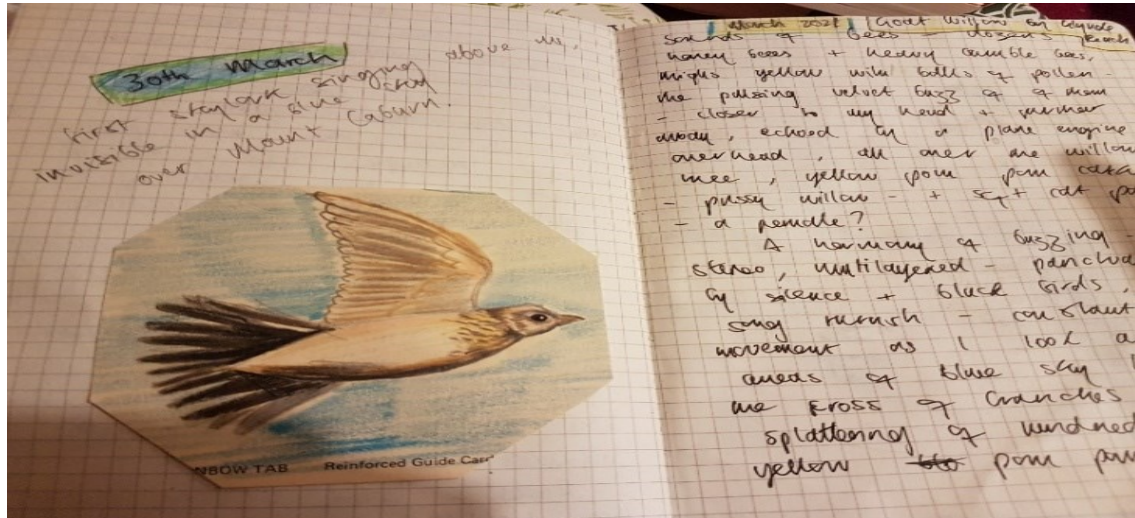 30th March
first skylark singing above me,
invisible in a blue sky
over Mount Caburn.
NBOW TAB Reinforced Guide Car
March 2021 Goat Willow by
sounds of bees - dozens
honey bees + heavy bumble bees,
yellow with balls of pollen -
the pulsing velvet buzz of of them
- closer to my head + further
away, echoed by a plane engine
overhead, all over the willow
tree, yellow pom pom
- pussy willow - + cat
- a female?
A harmony of buzzing -
stereo, multilayered -
by silence + black birds,
song thrush - constant
movement as I look a
areas of blue sky
the cross of branches
splattering of hundred
yellow pom pom